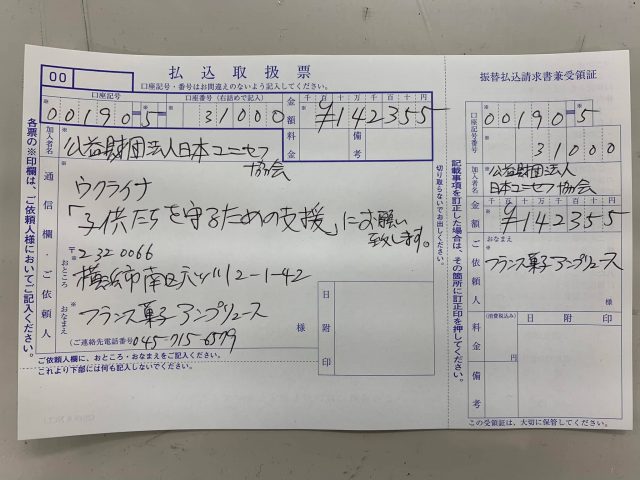 00
払込取扱票
口座記号・番号はお間違えのないよう記入してください。
口座記号
口座番号(右詰めで記入)
00190=5= 31000
金額
千百十万千百十円
¥142355
加入者名
公益財団法人日本ユニセフ
協会
料金
備考
各票の※印欄は、ご依頼人様においてご記入ください。
通信欄・ご依頼人
ウクライナ
「子供たちを守るための支援」にお願い
致します。
切り取らないでお出しください。
おところ
〒2320066
横浜市南区六ツ川2-1-42
おなまえ
フランス菓子アンプリュース
様
(ご連絡先電話番号045-715-6579
日附印
ご依頼人欄に、おところ・おなまえをご記入ください。
これより下部には何も記入しないでください。
振替払込請求書兼受領証
口座記号
00190=5
31000
加入者名
公益財団法人
日本ユニセフ協会
金額
千百十万千百十円
¥142355
記載事項を訂正した場合は、その箇所に訂正印を押してください。
ご依頼人
おなまえ
フランス菓子アンプリュース
様
料金
(消費税込み)
円
日附印
備考
この受領証は、大切に保管してください。